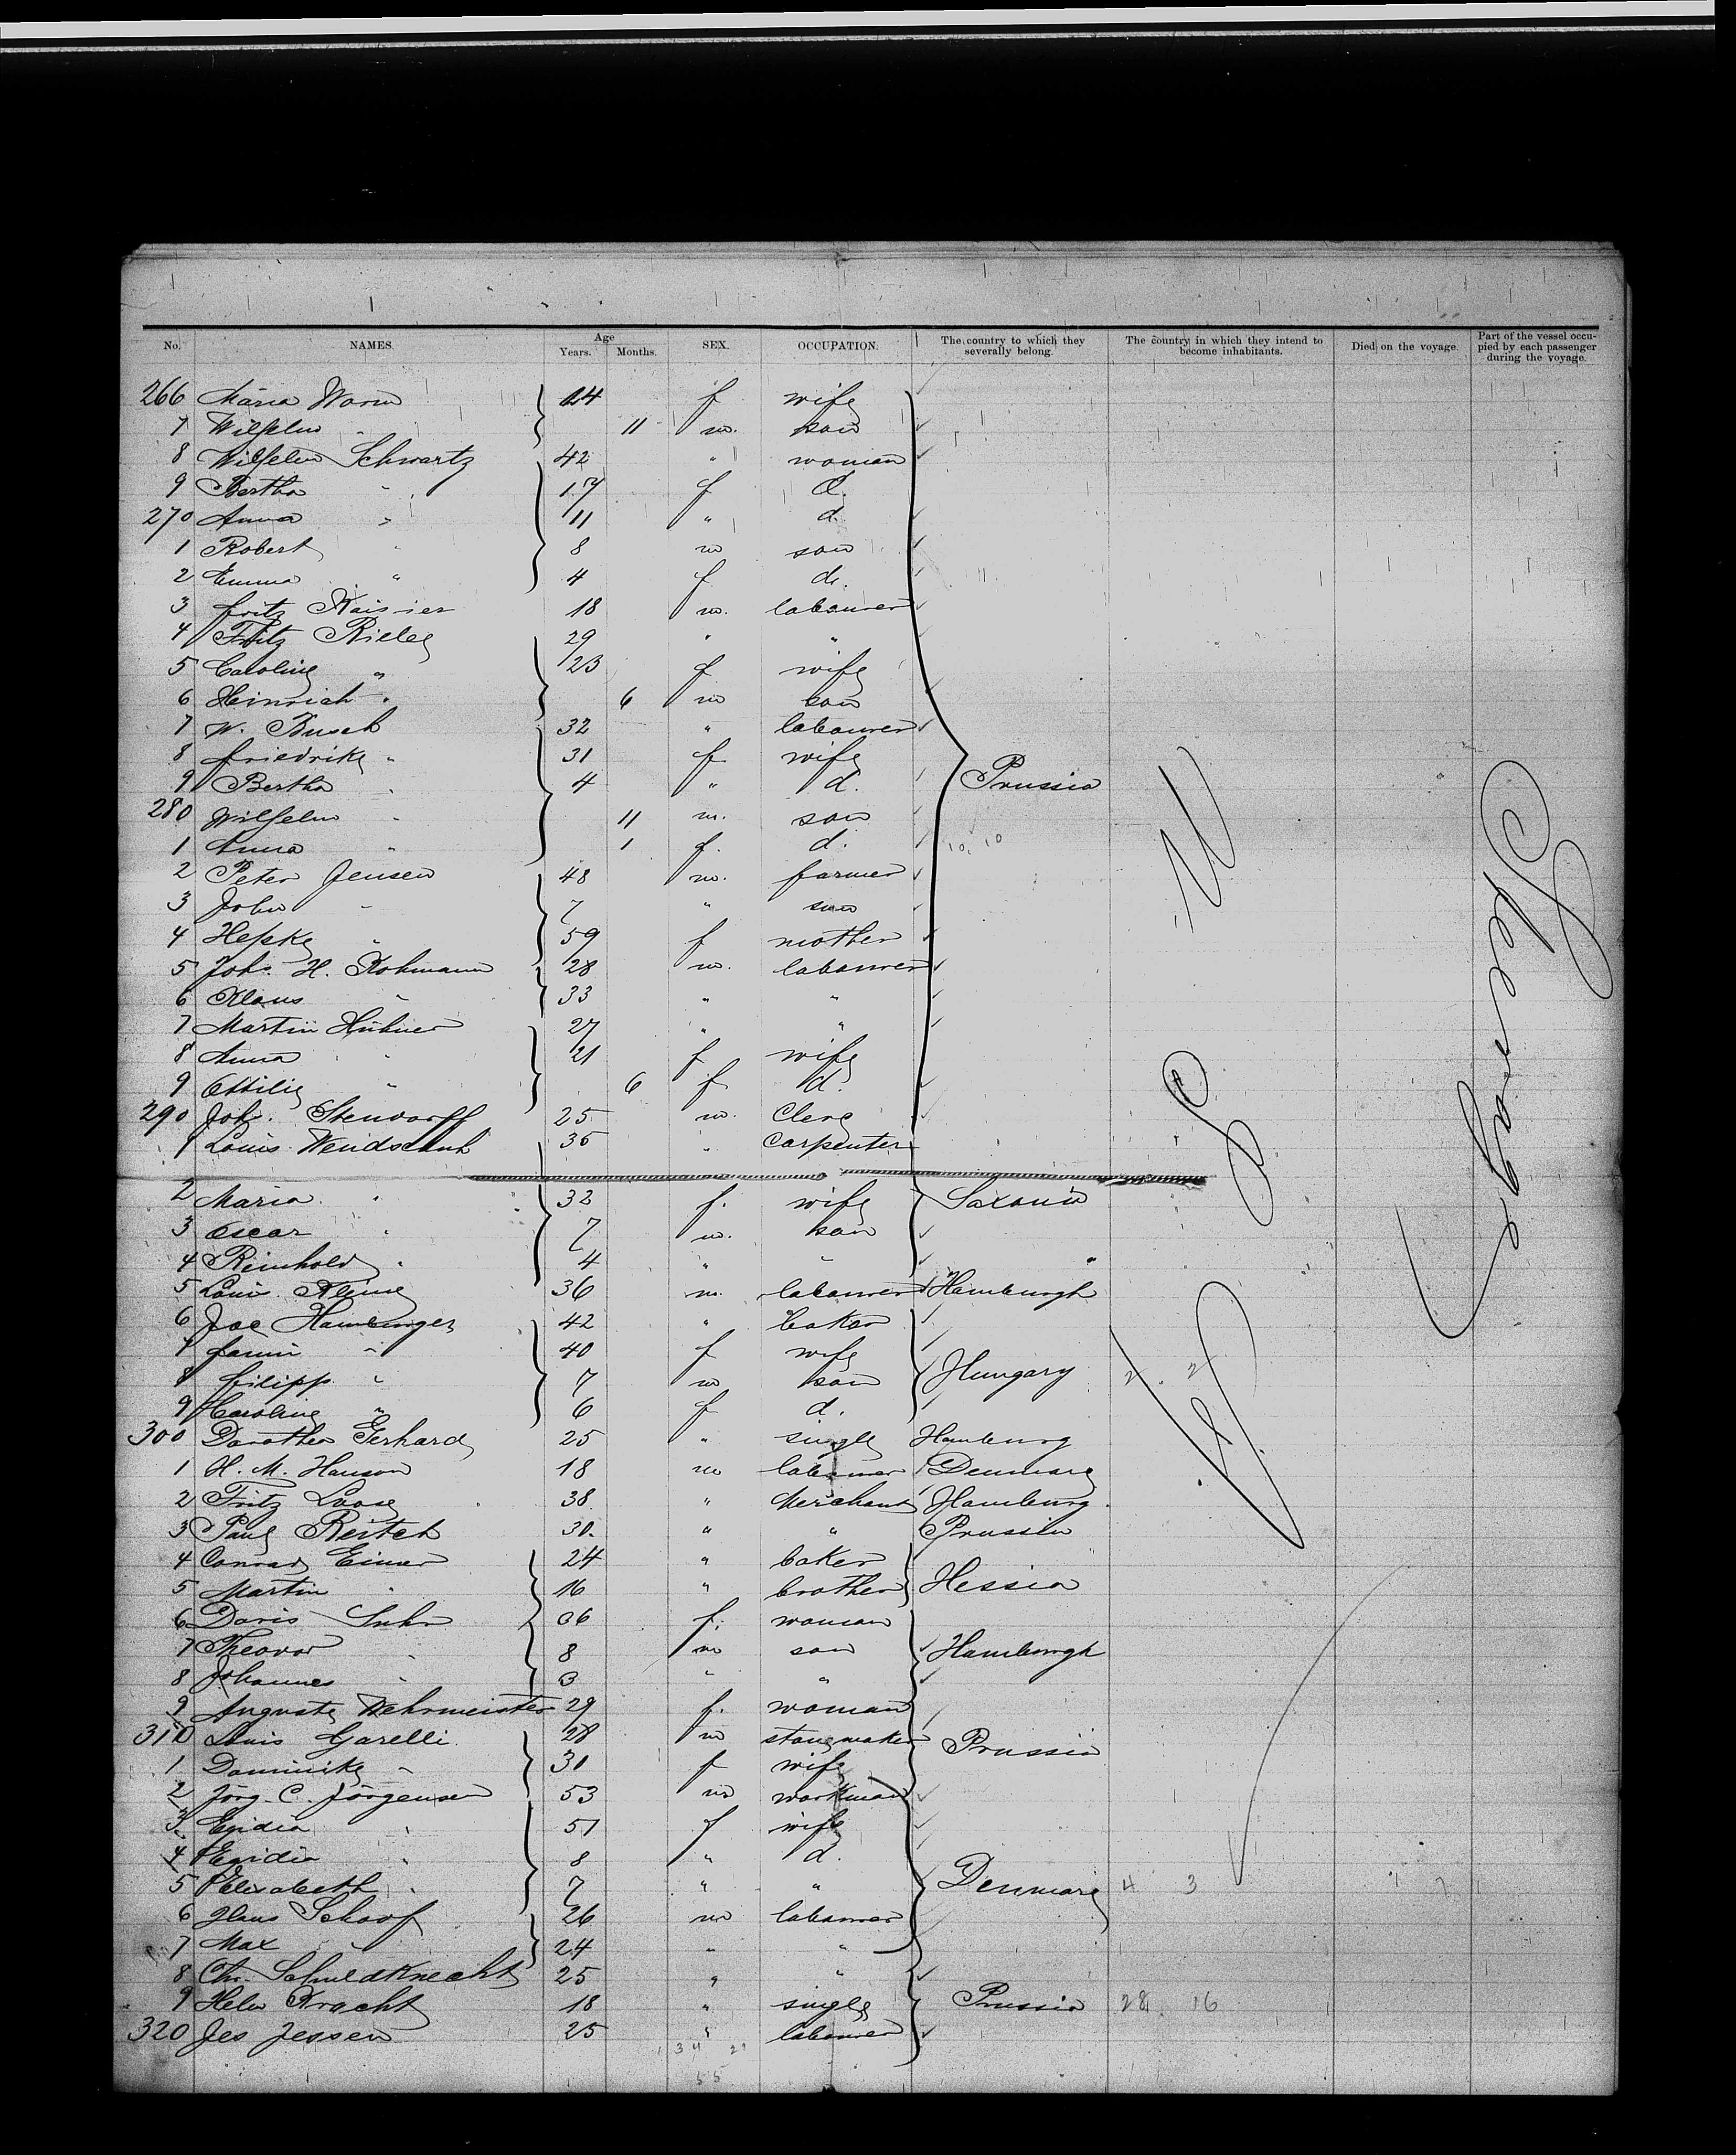 No. NAMES. Age Years. Months. SEX. OCCUPATION. The country to which they severally belong. The country in which they intend to become inhabitants. Died on the voyage. Part of the vessel occupied by each passenger during the voyage.
266 Maria Worm 24 f wife
7 Wilhelm " 11 m. son
8 Wilhelm Schwartz 42 " woman
9 Bertha " 17 f d.
270 Anna " 11 " d.
1 Robert " 8 m son
2 Emma " 4 f d.
3 Fritz 18 m. labourer
4 Fritz 29 " "
5 Caroline " 23 f wife
6 Heinrich " 6 m son
7 W. Busch 32 " labourer
8 Friedrike " 31 f wife
9 Bertha " 4 " d. Prussia
280 Wilhelm " 11 m. son
1 Anna " 1 f. d. 10. 10
2 Peter Jensen 48 m. farmer
3 John " 7 " son
4 " 59 f mother
5 Joh. H. Kohmann 28 m. labourer
6 Klaus " 33 " "
7 Martin Hübner 27 " "
8 Anna " 21 f wife
9 Ottilie " 6 f d.
290 Joh. Stendorff 25 m. Clerc
1 Louis Weidschuh 35 " Carpenter
2 Maria " 32 f. wife Saxonia
3 Oscar " 7 m. son
4 Reinhold " 4 " " "
5 Louis Kleine 36 m. labourer Hamburgh
6 Joe Hamburger 42 " baker
7 Fanni " 40 f wife
8 Filipp " 7 m son Hungary 2. 2
9 Caroline " 6 f d.
300 Dorothea Gerhard 25 " single Hamburg
1 H. M. Hanson 18 m labourer Denmarc
2 Fritz Loose 38 " Merchant Hamburg
3 Paul 30. " " Prussia
4 Conrad Eimer 24 " baker
5 Martin " 16 " brother Hessia
6 Doris Suhr 36 f. woman
7 Theodor " 8 m son Hamburgh
8 Johannes " 3 " "
9 Auguste Wehrmeister 29 f. woman
310 Louis Garelli 28 m Prussia
1 Dominike " 30 f wife
2 Jörg. C. Jörgensen 53 m workman
3 Egidia " 51 f wife
4 Egidia " 8 " d.
5 Elisabeth " 7 " " Denmarc 4 3
6 Hans Schoof 26 m labourer
7 Max " 24 " "
8 Chr. Schuldknecht 25 " "
9 Helw Kracht 18 " single Prussia 28. 16
320 Jes Jessen 25 " labourer
34 21
55
U
S
A
Steerage